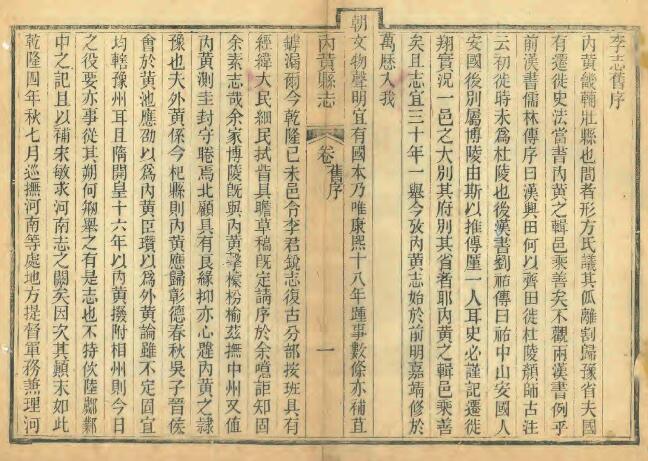 李志舊序
內黃畿輔壯縣也間者形方氏議其侃離割歸豫省夫國
有遷徙史法當書內黃之輯邑乘善矣不觀兩漢書例乎
前漢書儒林傳序曰漢興田何以齊田徙杜陵顏師古注
云初徙時未為杜陵也後漢書劉祐傳曰祐中山安國人
安國後別屬博陵由斯以推傳厪一人耳史必謹記遷徙
翔實況一邑之大別其府別其省者耶內黃之輯邑乘善
矣且志宜三十年一舉今攷內黃志始於前明嘉靖修於
萬歷入我
朝文物聲明宜有國本乃唯康熙十八年踵事數條亦補苴
內黃縣志
卷舊序
一
罅漏爾今乾隆己未邑令李君銳志復古分部按班具有
經緯大民細民拭眥具瞻草稿既定請序於余噫詎知固
余素志哉余家博陵既與內黃擊榛枌榆茲撫中州又值
內黃測圭封守睠焉北顧具有良緣抑亦心韙內黃之隸
豫也夫外黃係今杞縣則內黃應歸彰德春秋吳子晉侯
會於黃池應劭以為內黃臣瓚以為外黃論雖不定固宜
均轄豫州耳且隋開皇十六年以內黃撥附相州則今日
之役要亦事從其朔何剏舉之有是志也不特依陸鄴
中之記且以補宋敏求河南志之闕矣因次其顛末如此
乾隆四年秋七月巡撫河南等處地方提督軍務兼理河